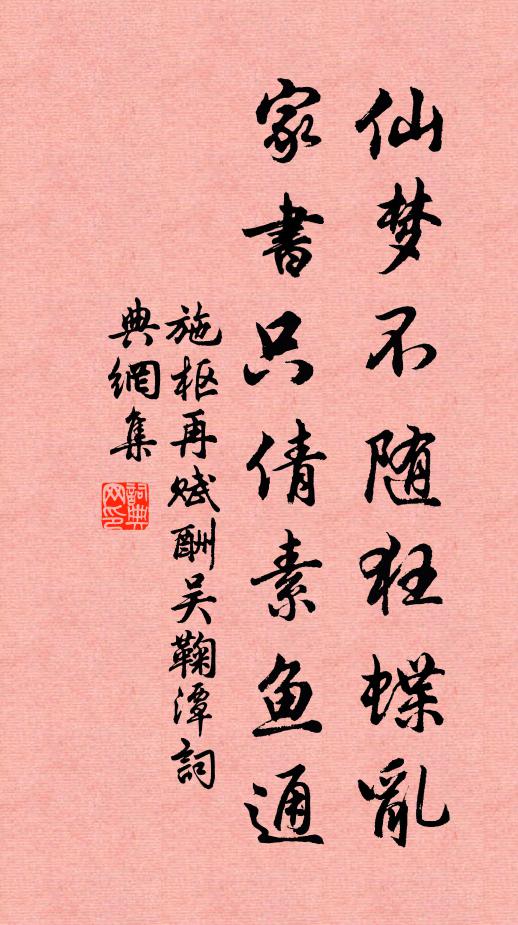 仙梦不随狂蝶亂
家書只倩素鱼通
施枢再赋酬吴鞠潭詞
典網集
詞典网印